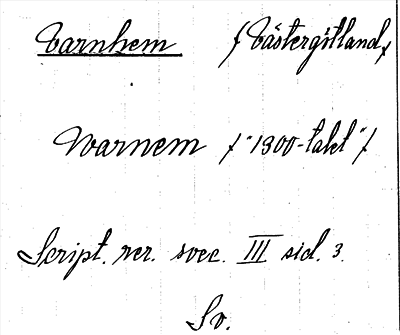 Varnhem (Västergötland)
Warnem ("1300-talet")
Script. rer. svec. III sid. 3.
Sv.